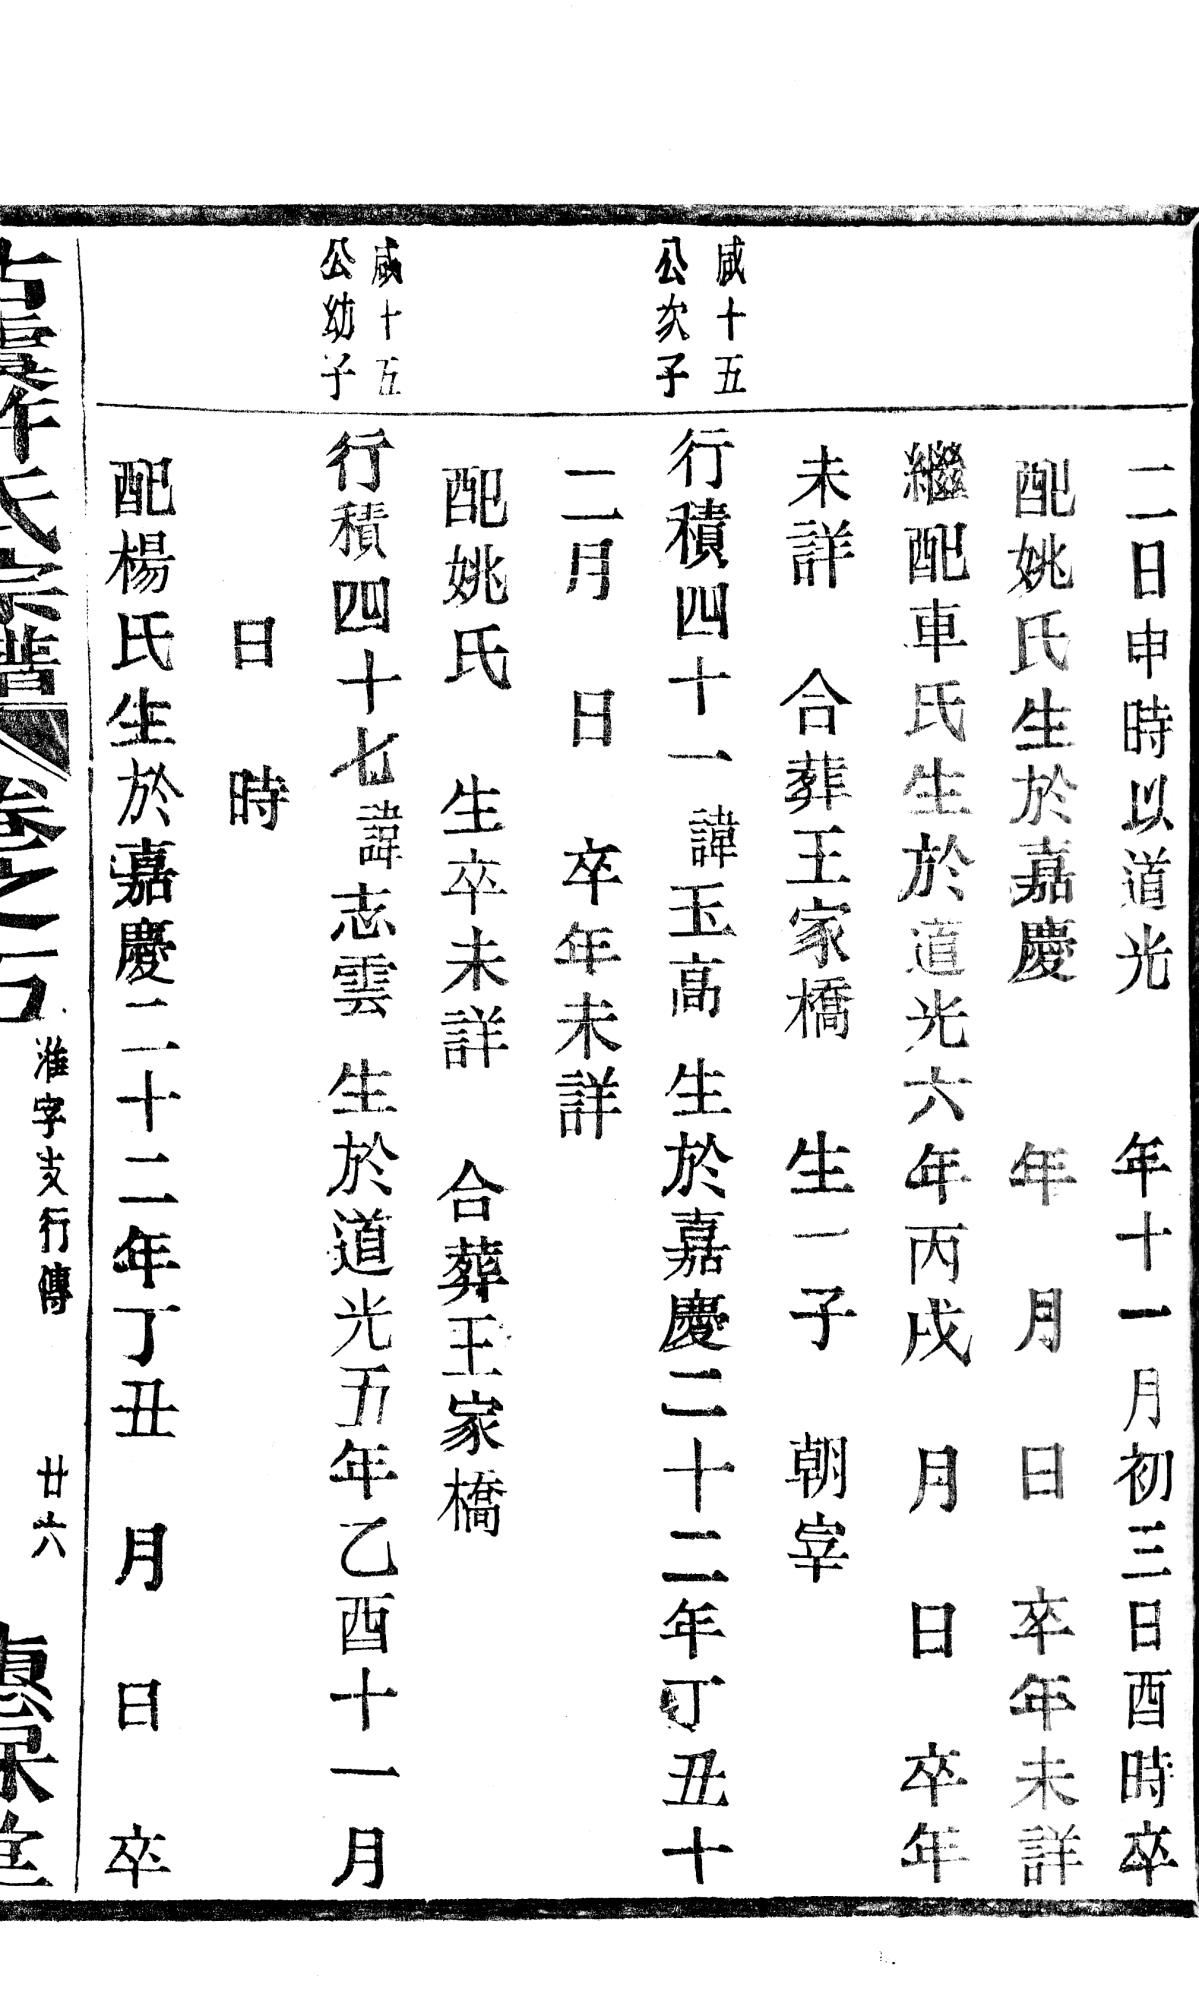 二日申時以道光　　年十一月初三日酉時卒
配姚氏生於嘉慶　　年　月　日　卒年未詳
繼配車氏生於道光六年丙戌　月　日　卒年
未詳　合葬王家橋　生一子　朝宰
咸十五
公次子
行積四十一諱玉高　生於嘉慶二十二年丁丑十
二月　日　卒年未詳
配姚氏　生卒未詳　合葬王家橋
咸十五
公幼子
行積四十七諱志雲　生於道光五年乙酉十一月
日　時
配楊氏生於嘉慶二十二年丁丑　月　日　卒
古虞許氏宗譜　卷之　淮字支行傳　廿六　惠保堂